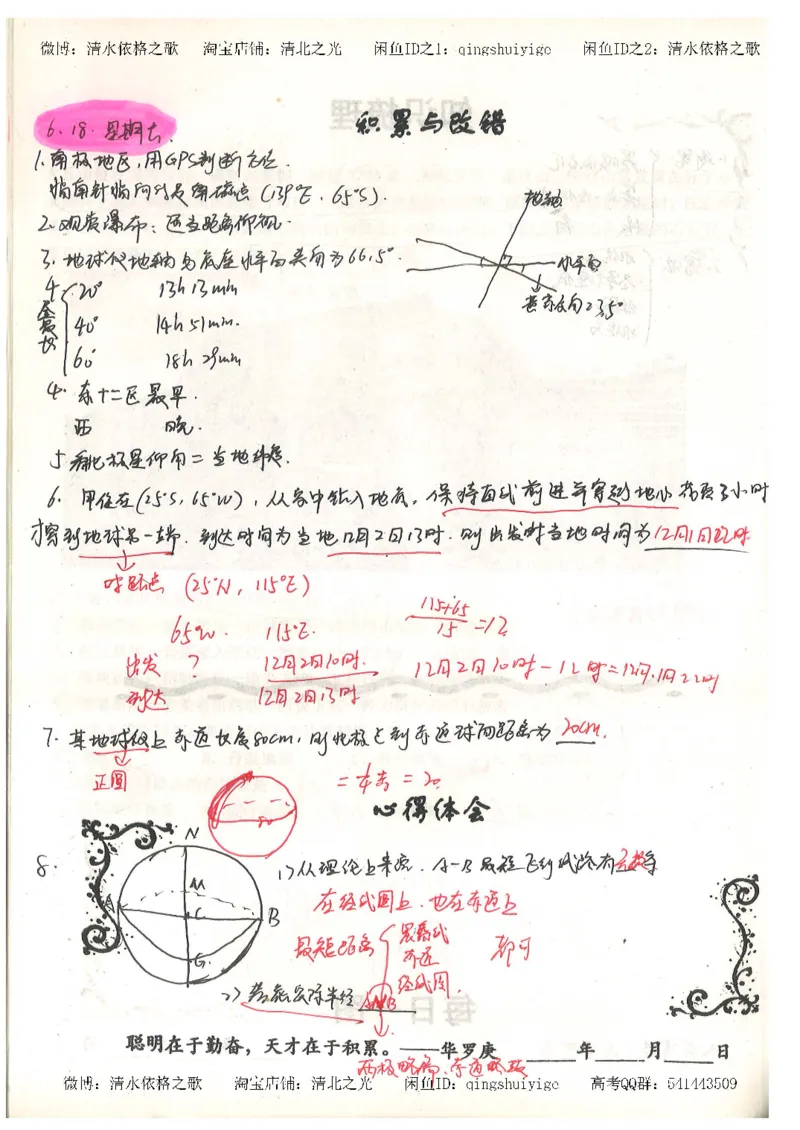 微博：清水依格之歌 淘宝店铺：清北之光 闲鱼ID之1：qingshuiyige 闲鱼ID之2：清水依格之歌
6.18.星期七.
积累与改错
1.南极地区，用GPS判断方位.
指南针指向的是南磁点（139°E.65°S）.
2.观赏瀑布：适当距离仰视.
3.地球仪地轴与底座水平面夹角为66.5°.
地轴
水平面
赤道
夹角23.5°
昼长
20° 13h13min
40° 14h51min.
60° 18h29min
4.东十二区最早.
西 晚.
5.看北极星仰角=当地纬度.
6.甲位在（25°S，65°W），从家中钻入地底，保持直线前进并穿过地心 若须3小时
才穿到地球另一端.到达时间为当地12月2日13时.则出发时当地时间为12月1日22时
对跖点（25°N，115°E）
65°W. 115°E.
115+65
15 =12
出发 ? 12月2日10时.
到达 12月2日13时
12月2日10时-12时=12月1日22时
7.某地球仪上赤道长度80cm，则北极至到赤道球面距离为20cm.
正圆
=¼赤=20
心得体会
8.
N
M
A
C
B
G
1）从理论上来说.A-B最短飞行线路有无数条
在经线圈上.也在赤道上
最短距离 晨昏线
赤道
经线圈.
即可
2）若能公际半径 A B
聪明在于勤奋，天才在于积累。——华罗庚 年 月 日
两极略扁.赤道略鼓
微博：清水依格之歌 淘宝店铺：清北之光 闲鱼ID：qingshuiyige 高考QQ群：541443509